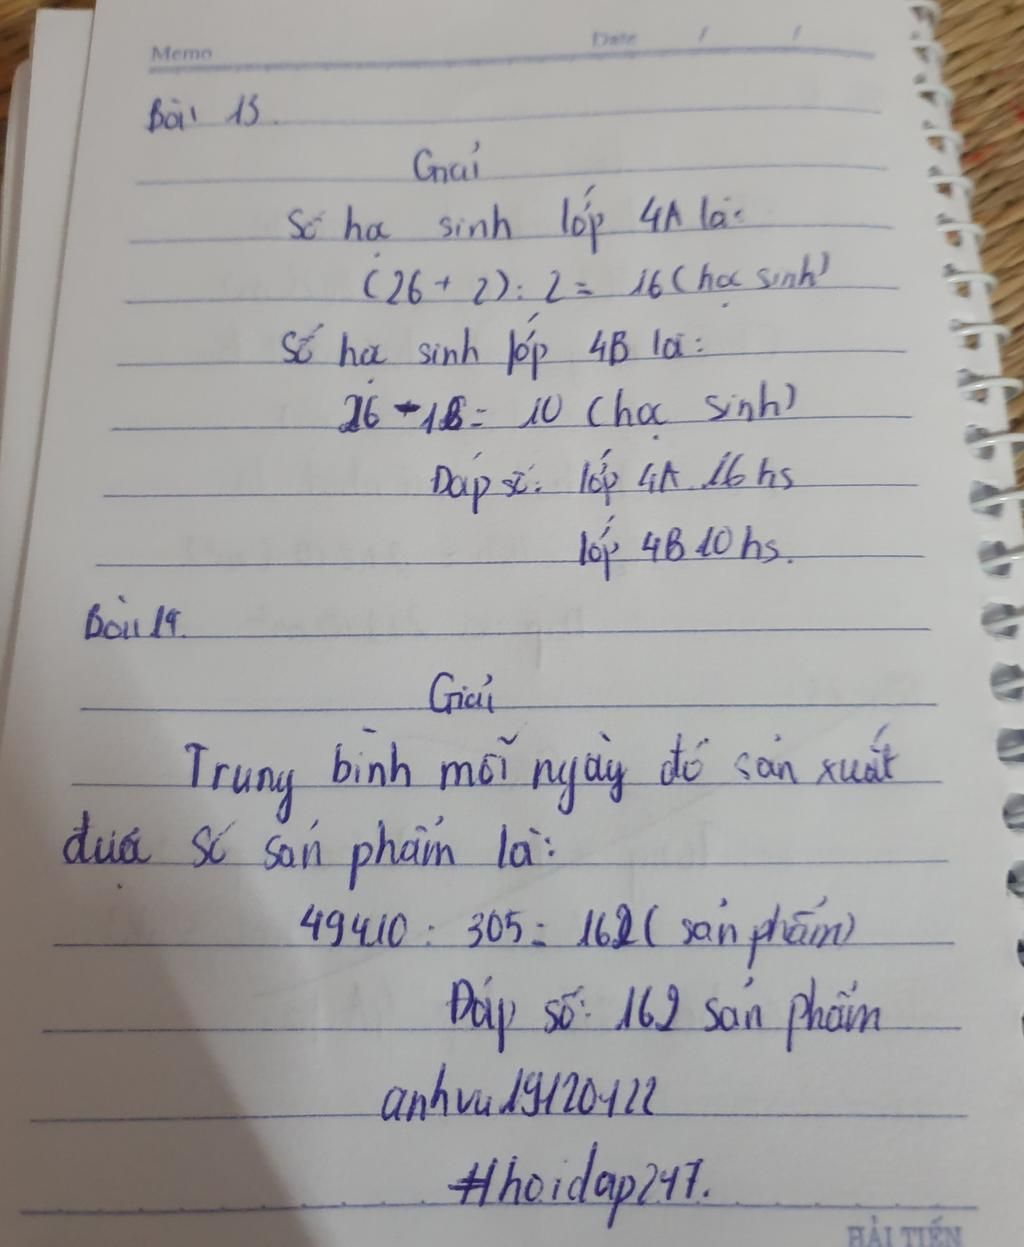 Memo Date / /
Bài 13.
Giải
Số học sinh lớp 4A là:
(26 + 2) : 2 = 16 (học sinh)
Số học sinh lớp 4B là:
26 - 16 = 10 (học sinh)
Đáp số: lớp 4A 16 hs
lớp 4B 10 hs.
Bài 14.
Giải
Trung bình mỗi ngày đó sản xuất
được số sản phẩm là:
49410 : 305 = 162 (sản phẩm)
Đáp số: 162 sản phẩm
anhvu19120122
#hoidap247.
HẢI TIẾN